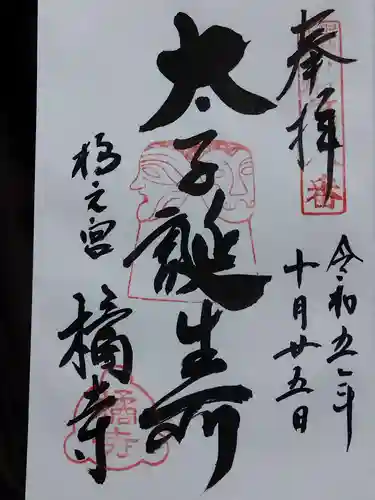 奉拝
令和五年
十月廿五日
太子誕生所
橘之宮
橘寺
橘寺